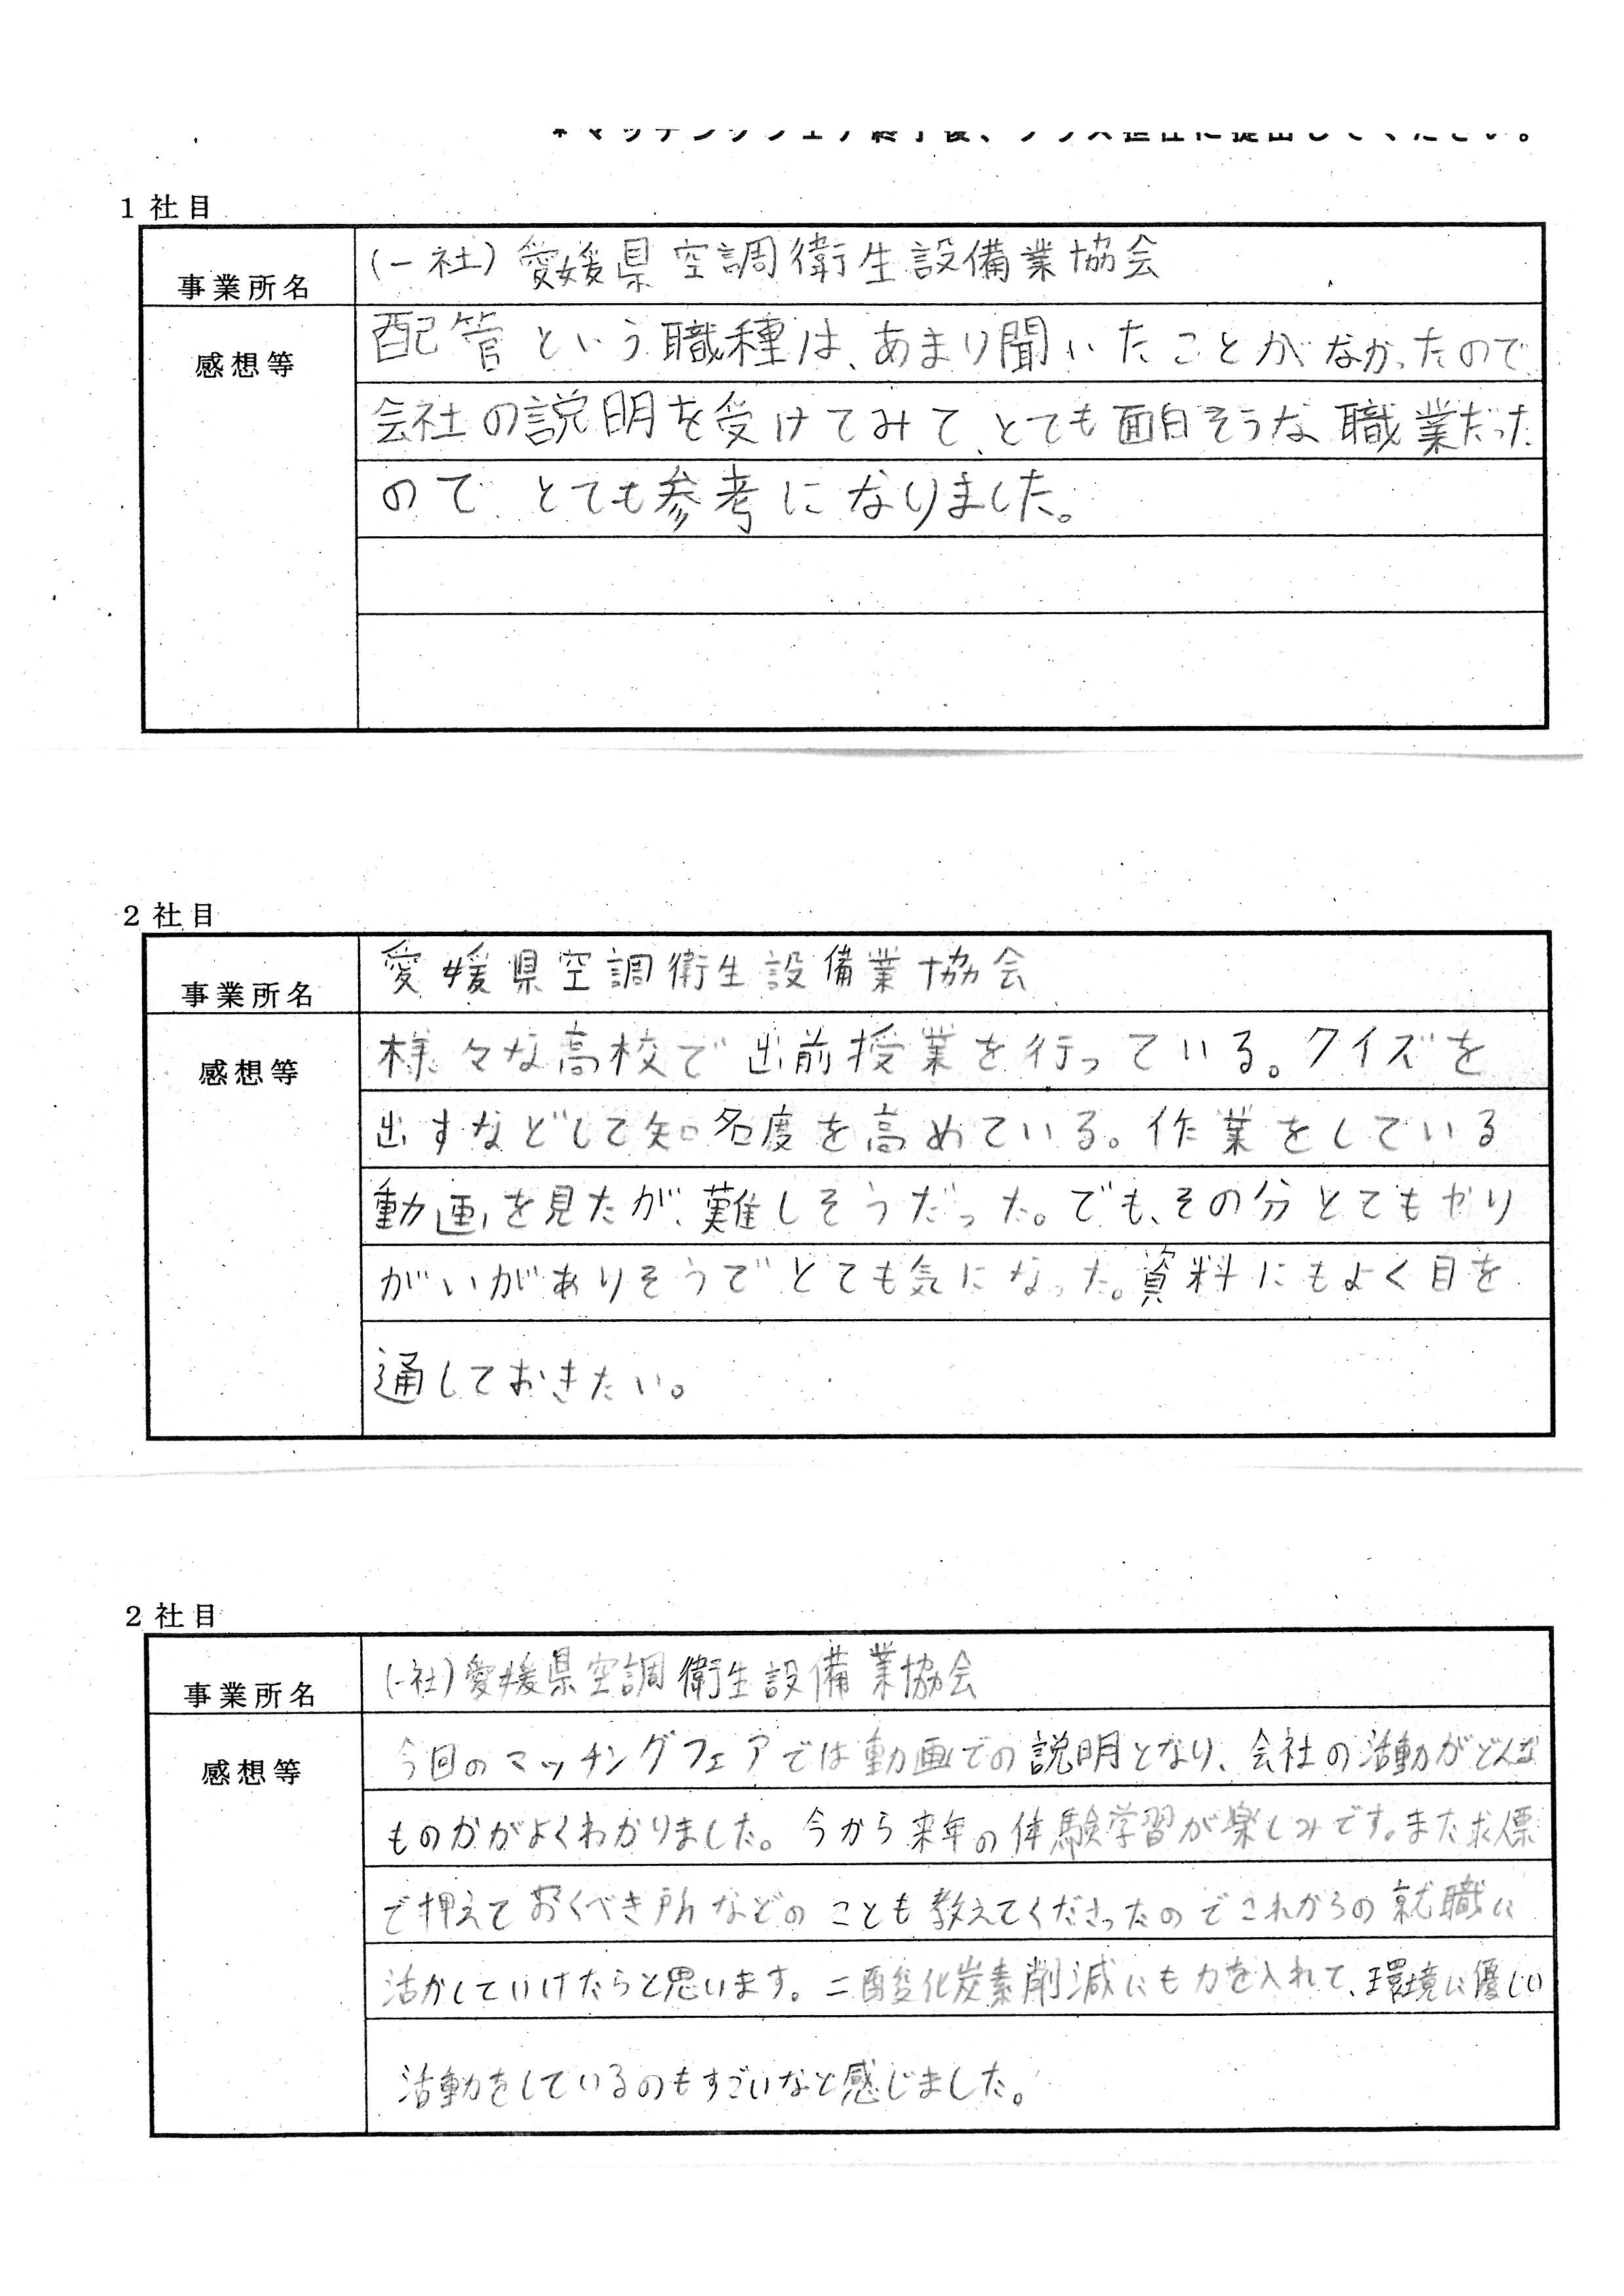 *マッチングフェア終了後、クラス担任に提出してください。
1 社目
事業所名
(一社)愛媛県空調衛生設備業協会
感想等
配管という職種は、あまり聞いたことがなかったので、
会社の説明を受けてみて、とても面白そうな職業だった
ので、とても参考になりました。
2 社目
事業所名
愛媛県空調衛生設備業協会
感想等
様々な高校で出前授業を行っている。クイズを
出すなどして知名度を高めている。作業をしている
動画を見たが、難しそうだった。でも、その分とてもやり
がいがありそうでとても気になった。資料にもよく目を
通しておきたい。
2 社目
事業所名
(一社)愛媛県空調衛生設備業協会
感想等
今回のマッチングフェアでは動画での説明となり、会社の活動がどんな
ものかがよくわかりました。今から来年の体験学習が楽しみです。また求僄
で押えておくべき所などのことも教えてくださったのでこれからの就職に
活かしていけたらと思います。二酸化炭素削減にも力を入れて、環境に優しい
活動をしているのもすごいなと感じました。